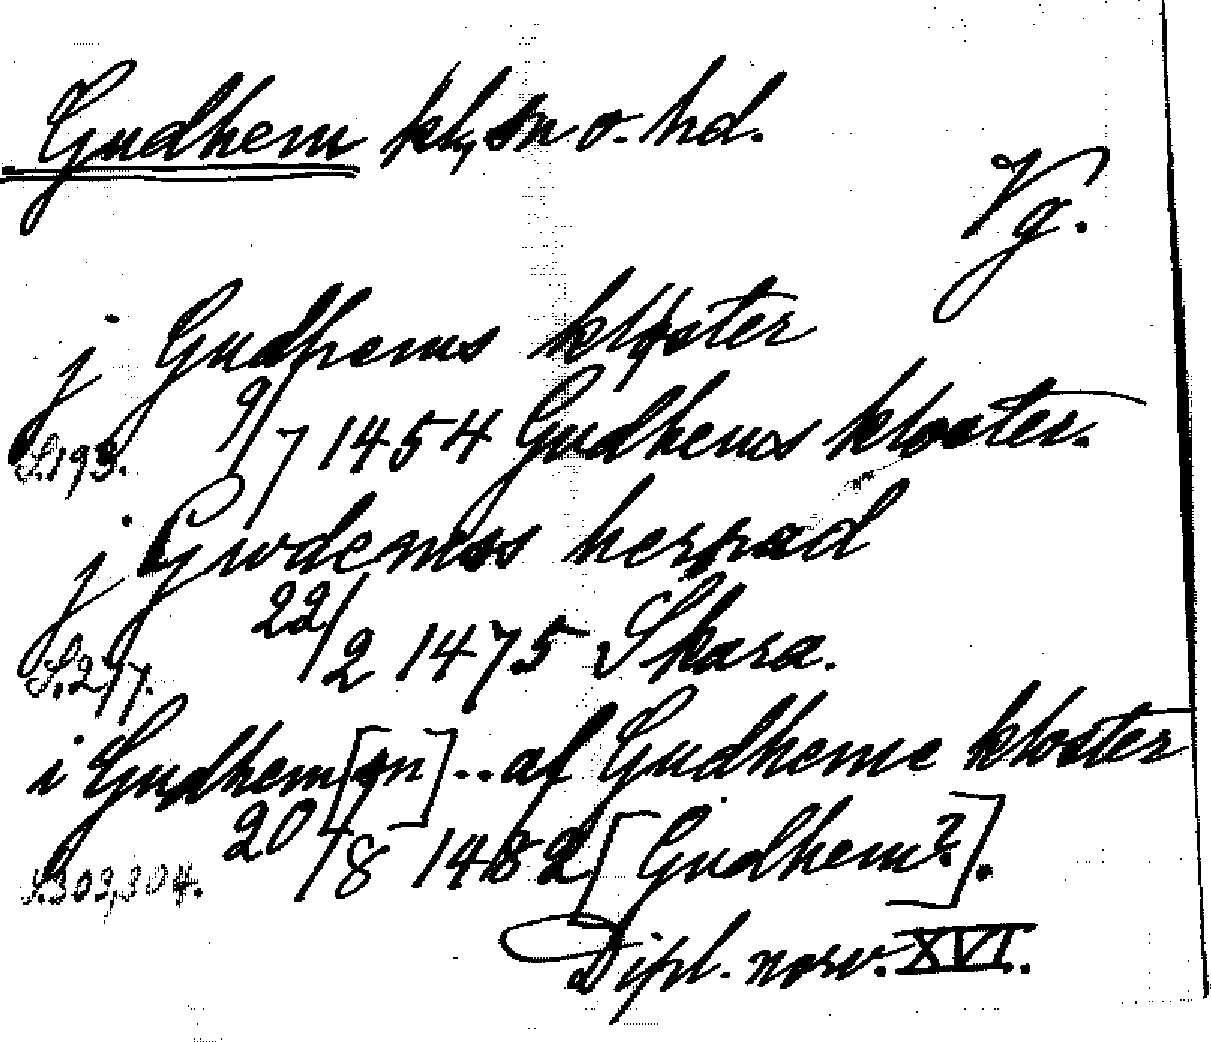 Gudhem kl, sn o. hd.
Vg.
j Gudhems kloster
S. 193. 9/7 1454 Gudhems kloster.
j Gwdemss herrad
S. 217. 22/2 1475 Skara.
i Gudhem [sn] .. af Gudheme kloster
S. 303, 304. 20/8 1482 [Gudhem?].
Dipl. norv. XVI.